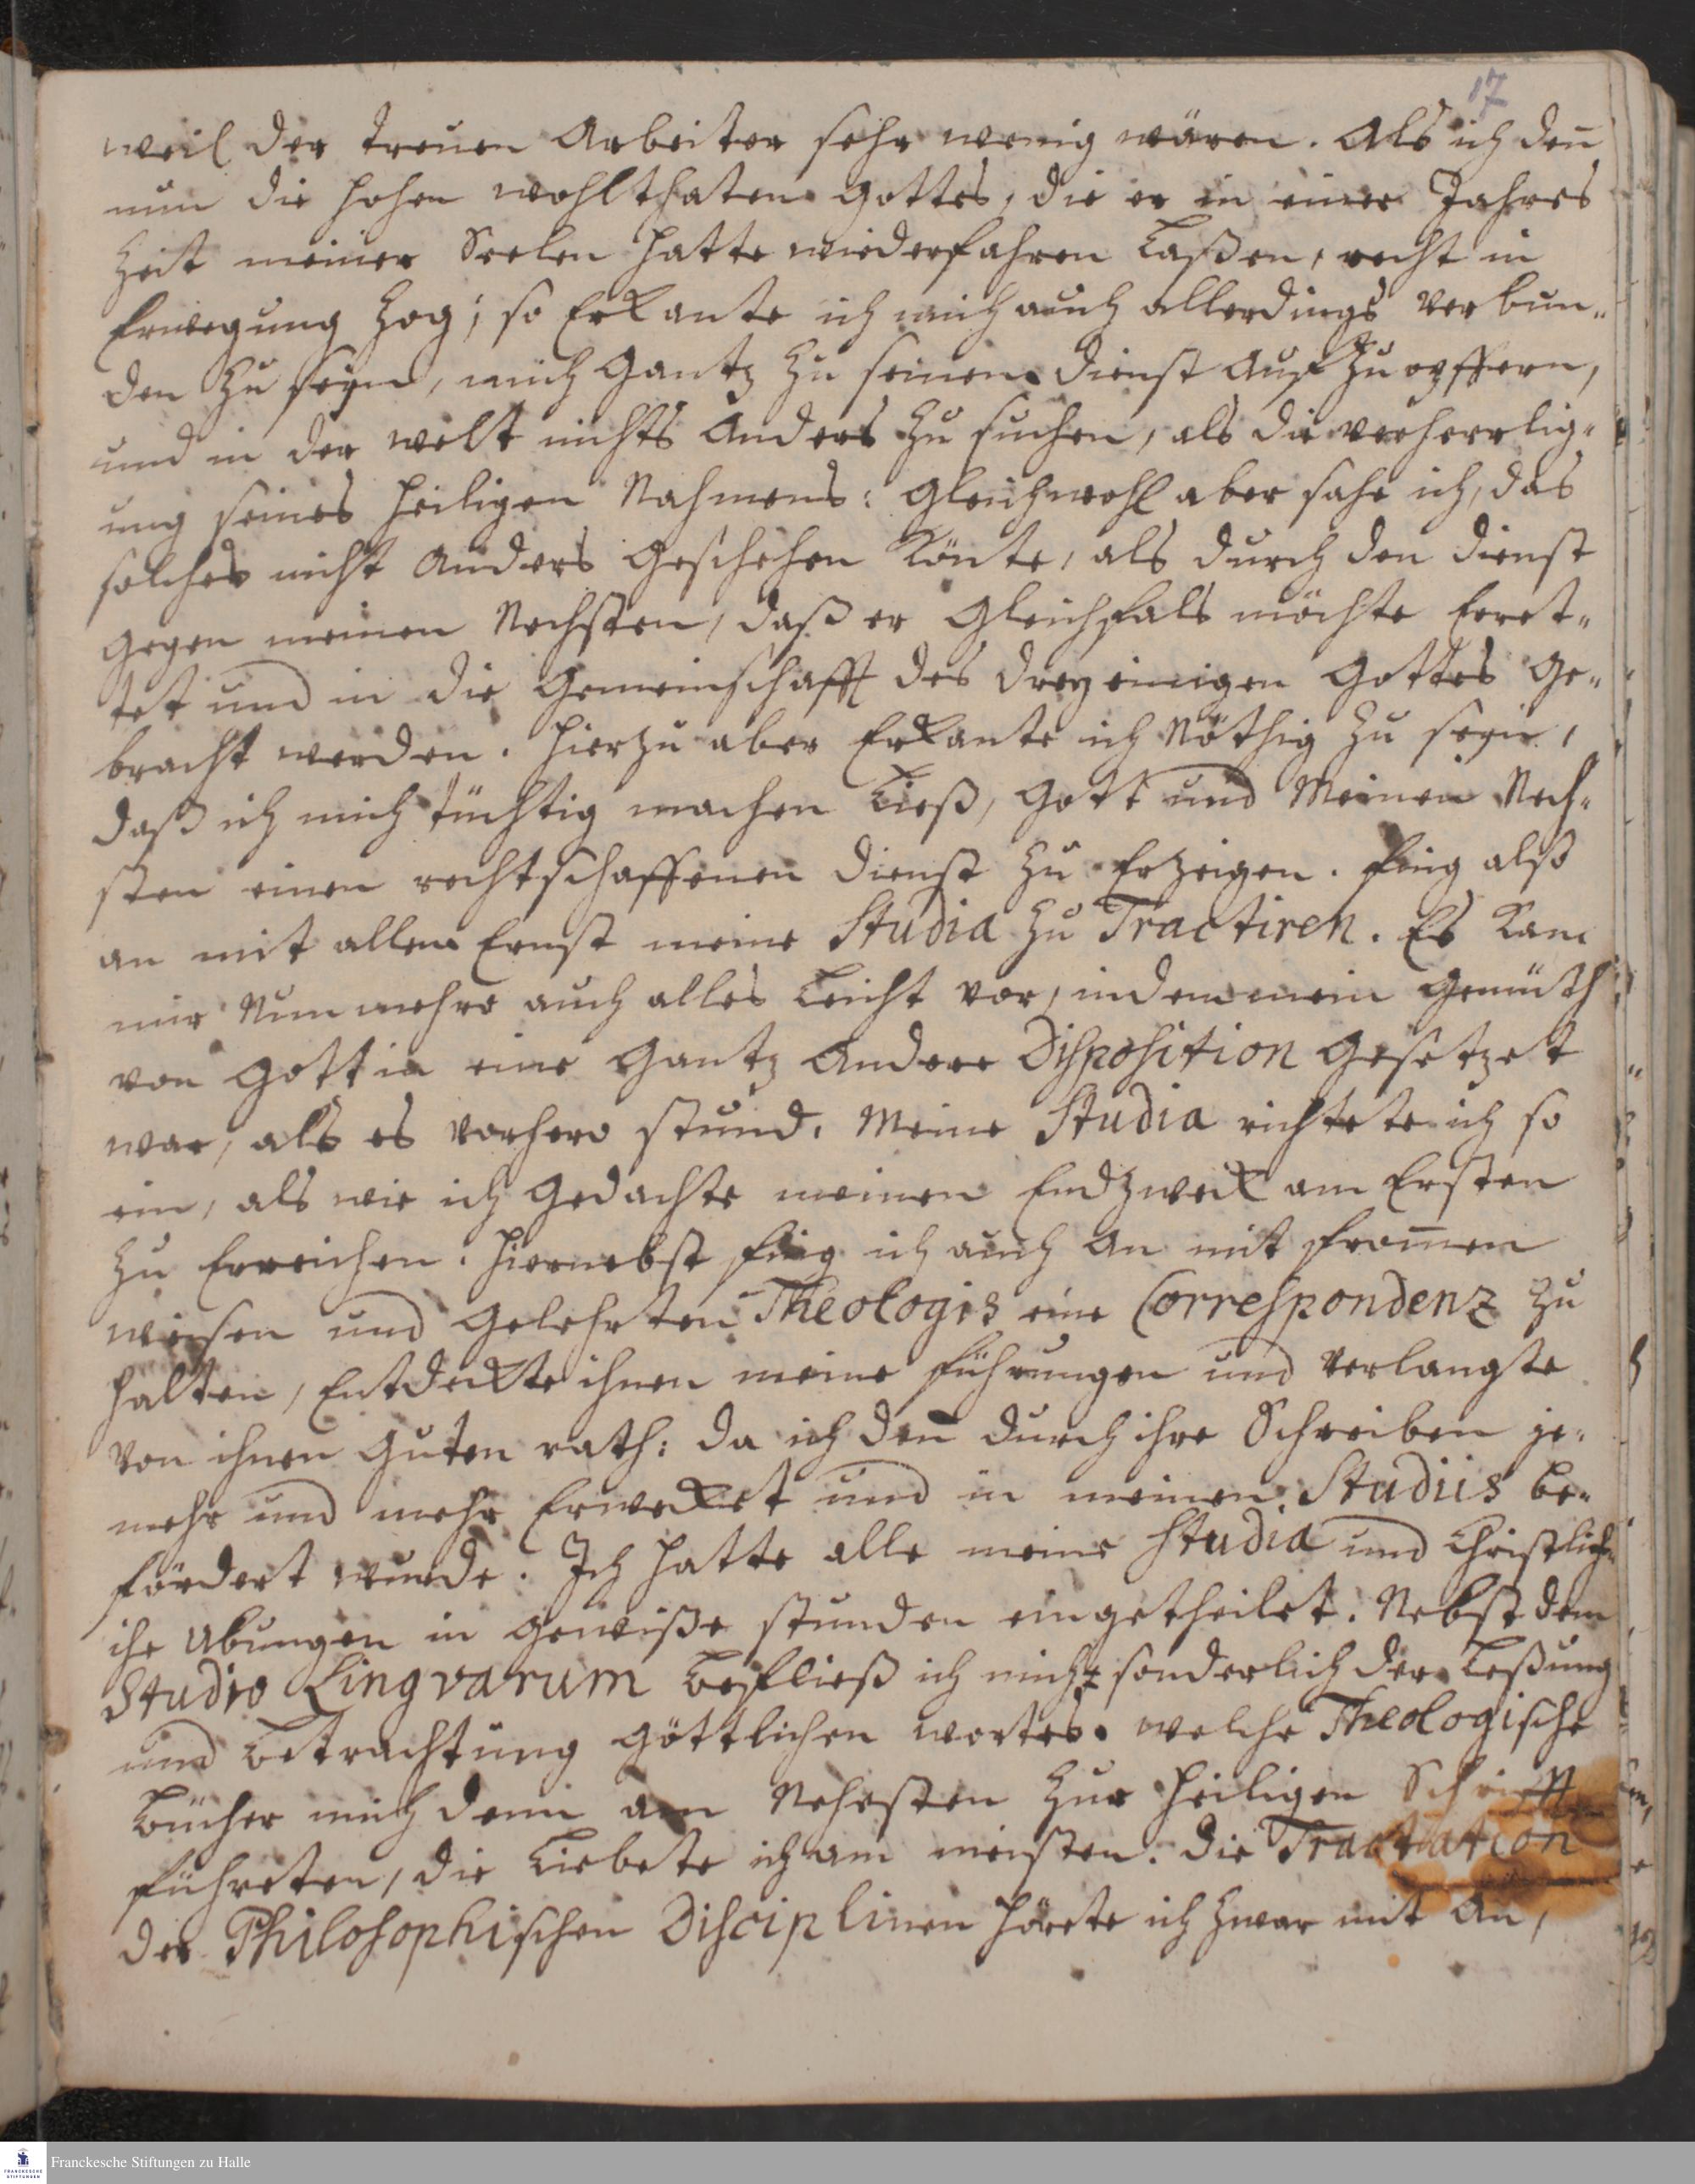 17
weil der treuen Arbeiter sehr wenig wären. Als ich den̄
nun die hohen wohlthaten Gottes, die er in einer Jahres
Zeit meiner Seelen hatte wiederfahren Laßen, recht in
Erwegung Zog; so Erkante ich mich auch allerdings verbun„
den Zu seyn, mich Gantz Zu seinem Dienst Auf Zu opffern,
und in der welt nichts Anders Zu suchen, als die verherrlig„
ung seines heiligen Nahmens: Gleichwohl aber sahe ich, das
solches nicht Anders Geschehen Könte, als durch den Dienst
Gegen meinen Nechsten, daß er Gleichfals möchte Erret„
tet und in die Gemeinschafft des dreyeinigen Gottes Ge„
bracht werden. Hierzu aber Erkante ich Nöthig Zu seyn,
daß ich mich tüchtig machen Ließ, Gott und Meinen Nech„
sten einen rechtschaffenen Dienst Zu Erzeigen. Fing alß
an mit allem Ernst meine Studia Zu Tractiren. Es Kam
mir Nunmehro auch alles Leicht vor, indem mein Gemüth
von Gott in eine Gantz Andere Disposition Gesetzet
war, als es vorhero stund. Meine Studia richtete ich so
ein, als wie ich Gedachte meinen Endzweck am Ersten
Zu Erreichen. Hiernebst fing ich auch An mit from̄en
weisen und Gelehrten Theologis eine Correspondenz Zu
halten, Entdeckte ihnen meine Führungen und verlangte
von ihnen Guten rath: da ich den̄ durch ihre Schreiben je„
mehr und mehr Erwecket und in meinen Studiis be„
fördert wurde. Ich hatte alle meine Studia und Christliche
ihe Ubungen in Gewiße stunden eingetheilet. Nebst dem
Studio Lingvarum Befließ ich mich sonderlich der Leßung
und Betrachtung Göttlichen wortes. welche Theologische
Bücher mich denn am Nehesten Zur heiligen Schrifft
führeten, die Liebete ich am meisten. Die Tractation
der Philosophischen Disciplinen hörete ich Zwar mit An,
Franckesche Stiftungen zu Halle